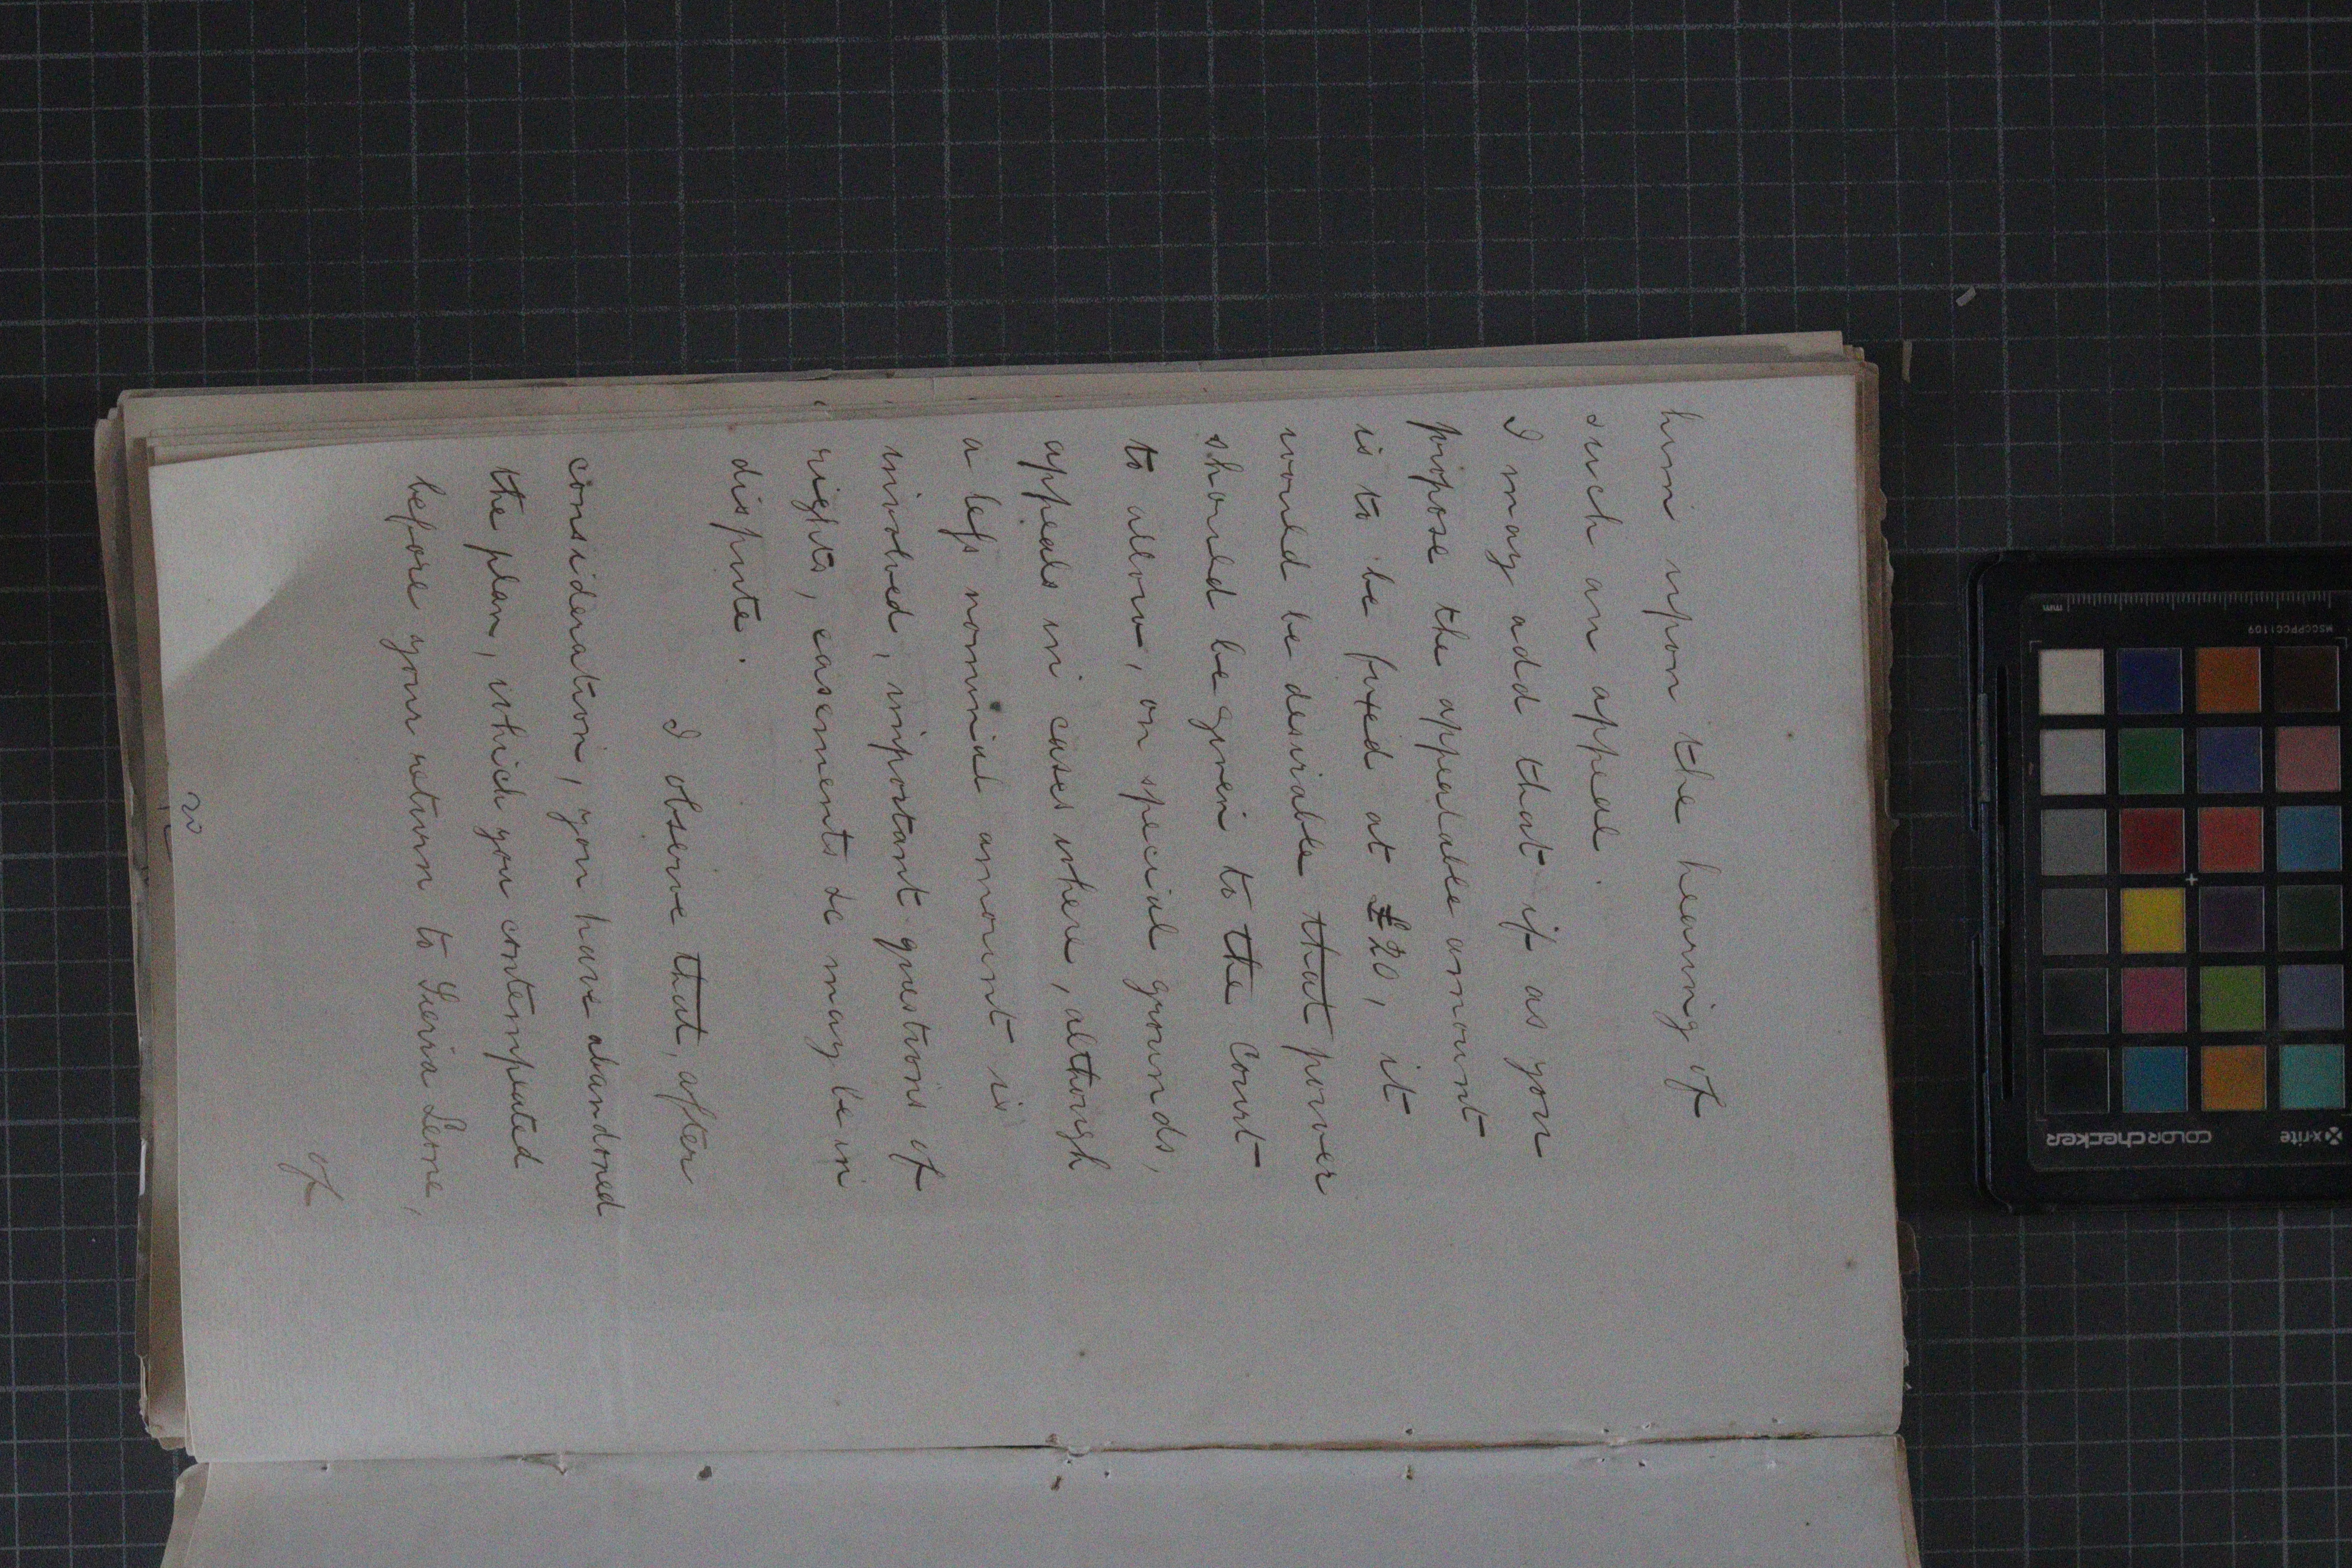 him upon the hearing of
such an appeal.
I may add that if as you
propose the appealable amount
is to be fixed at £20, it
would be desirable that power
should be given to the Court
to allow, on special grounds,
appeals in cases where, although
a less nominal amount is
involved, important questions of
rights, easements &c may be in
dispute.
I observe that, after
consideration, you have abandoned
the plan, which you contemplated
before your return to Sierra Leone,
of
MSCCPPCC1109
mm
x-rite
colorchecker